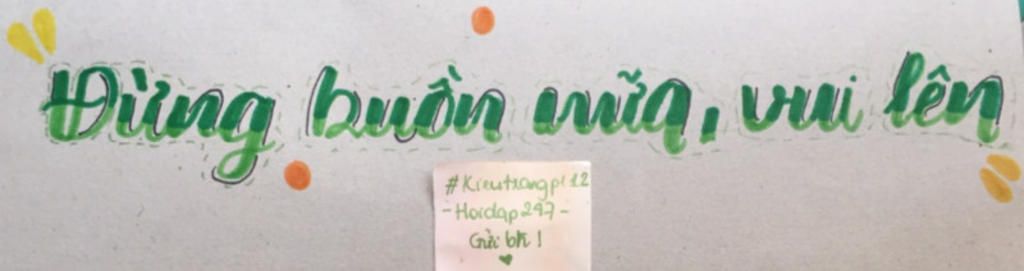 Đừng buồn nữa, vui lên
#Kieutrangpl12
-Hoidap247-
Gửi bk!